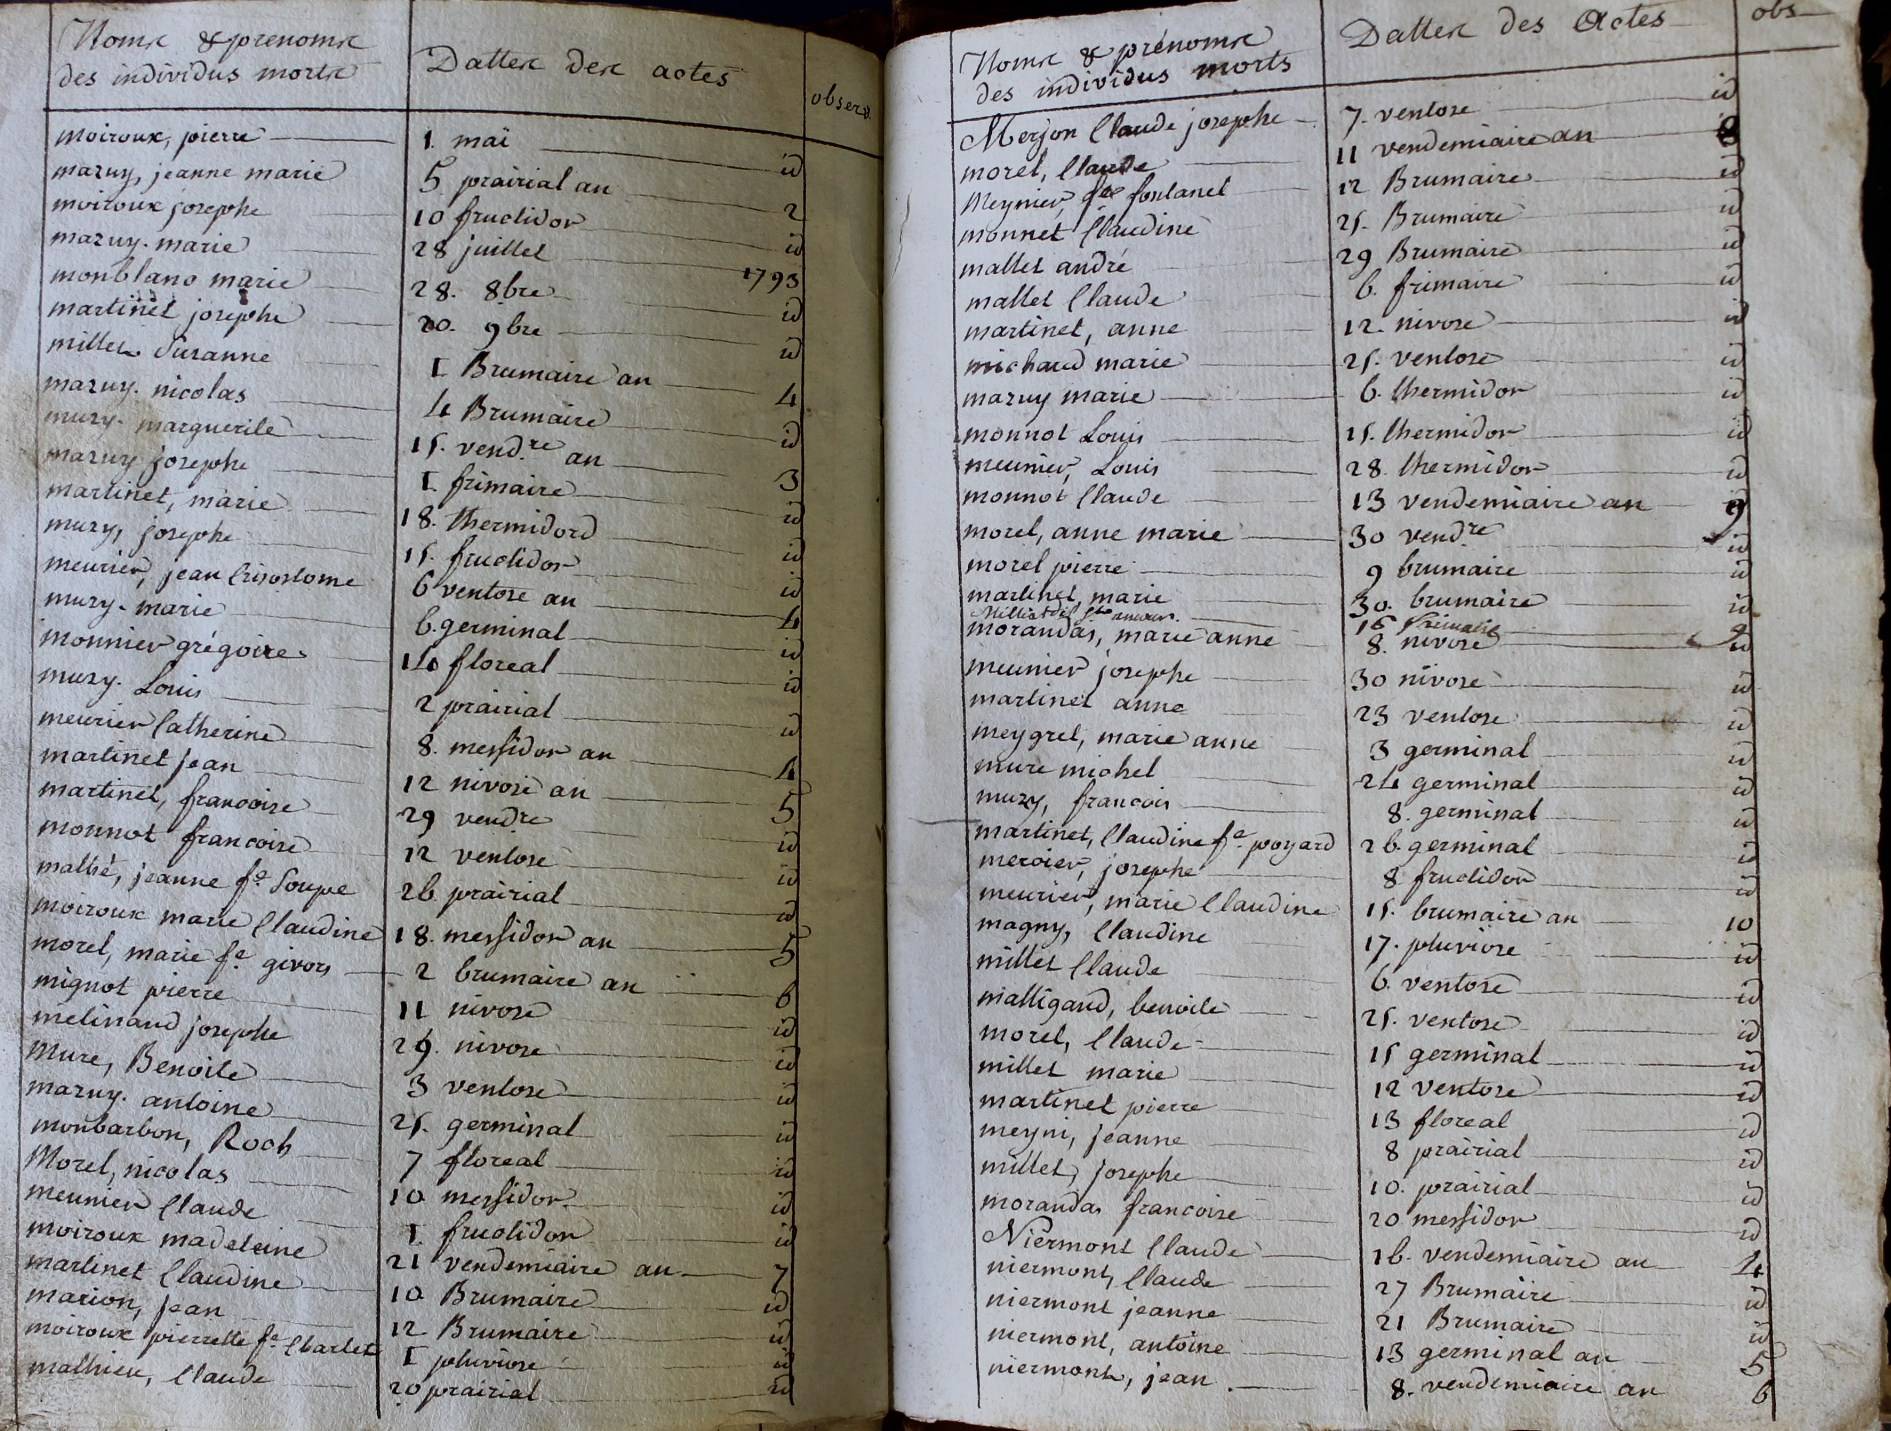 Noms & prenoms
des individus morts
Dattes des actes
observ.
moiroux, pierre 1. mai id
mazuy, jeanne marie 5 prairial an 2
moiroux josephe 10 fructidor id
mazuy. marie 28 juillet 1793
monblanc marie 28. 8bre id
martinet josephe 20. 9bre id
millet Suzanne 1 Brumaire an 4
mazuy. nicolas 4 Brumaire id
muzy. marguerite 15. vend.re an 3
mazuy josephe 1 frimaire id
martinet, marie 18. thermidord id
muzy, josephe 15. fructidor id
meurier, jean Crisostome 6 ventose an 4
muzy. marie 6. germinal id
monnier grégoire 14 floreal id
muzy. Louis 2 prairial id
meurier Catherine 8. messidor an 4
martinet jean 12 nivose an 5
martinet, francoise 29 vendre id
monnot francoise 12 ventose id
mathé, jeanne fe. Soupe 26 prairial id
moiroux marie Claudine 18. messidor an 5
morel, marie fe. givors 2 brumaire an 6
mignot pierre 11 nivose id
melinand josephe 29. nivose id
Mure, Benoite 3 ventose id
mazuy. antoine 25. germinal id
monbarbon, Roch 7 floreal id
Morel, nicolas 10 messidor id
meunier Claude 1 fructidor id
moiroux madeleine 21 vendemiaire an 7
martinet Claudine 10 Brumaire id
marion, jean 12 Brumaire id
moiroux pierrette fe. Charlet 1 pluviose id
mathieu, Claude 20 prairial id
Noms & prénoms
des individus morts
Dattes des Actes
obs
Merjon Claude josephe 7. ventose id
morel, Claude 11 vendemiaire an 8
Meynier, fe fontanel 12 Brumaire id
monnet Claudine 25. Brumaire id
mallet andré 29 Brumaire id
mallet Claude 6. frimaire id
martinet, anne 12. nivose id
michaud marie 25. ventose id
mazuy marie 6. thermidor id
monnot Louis 15. thermidor id
meunier, Louis 28. thermidor id
monnot Claude 13 vendemiaire an 9
morel, anne marie 30 vendre id
morel pierre 9 brumaire id
martinet, marie 30. brumaire id
16 frimaire
morandas, marie anne 8. nivose id
meunier josephe 30 nivose id
martinet anne 23 ventose id
meygret, marie anne 3 germinal id
mure michel 24 germinal id
muzy, francois 8. germinal id
martinet, Claudine fe. poyard 26 germinal id
mercier, josephe 8 fructidor id
meurier, marie Claudine 15. brumaire an 10
magny, Claudine 17. pluviose id
millet Claude 6. ventose id
malligand, benoite 25. ventose id
morel, Claude 15 germinal id
millet marie 12 ventose id
martinet pierre 13 floreal id
meyni, jeanne 8 prairial id
millet, josephe 10. prairial id
morandas francoise 20 messidor id
Niermont Claude 16. vendemiaire an 4
niermont, Claude 27 Brumaire id
niermont jeanne 21 Brumaire id
niermont, antoine 13 germinal an 5
niermont, jean 8. vendemiaire an 6